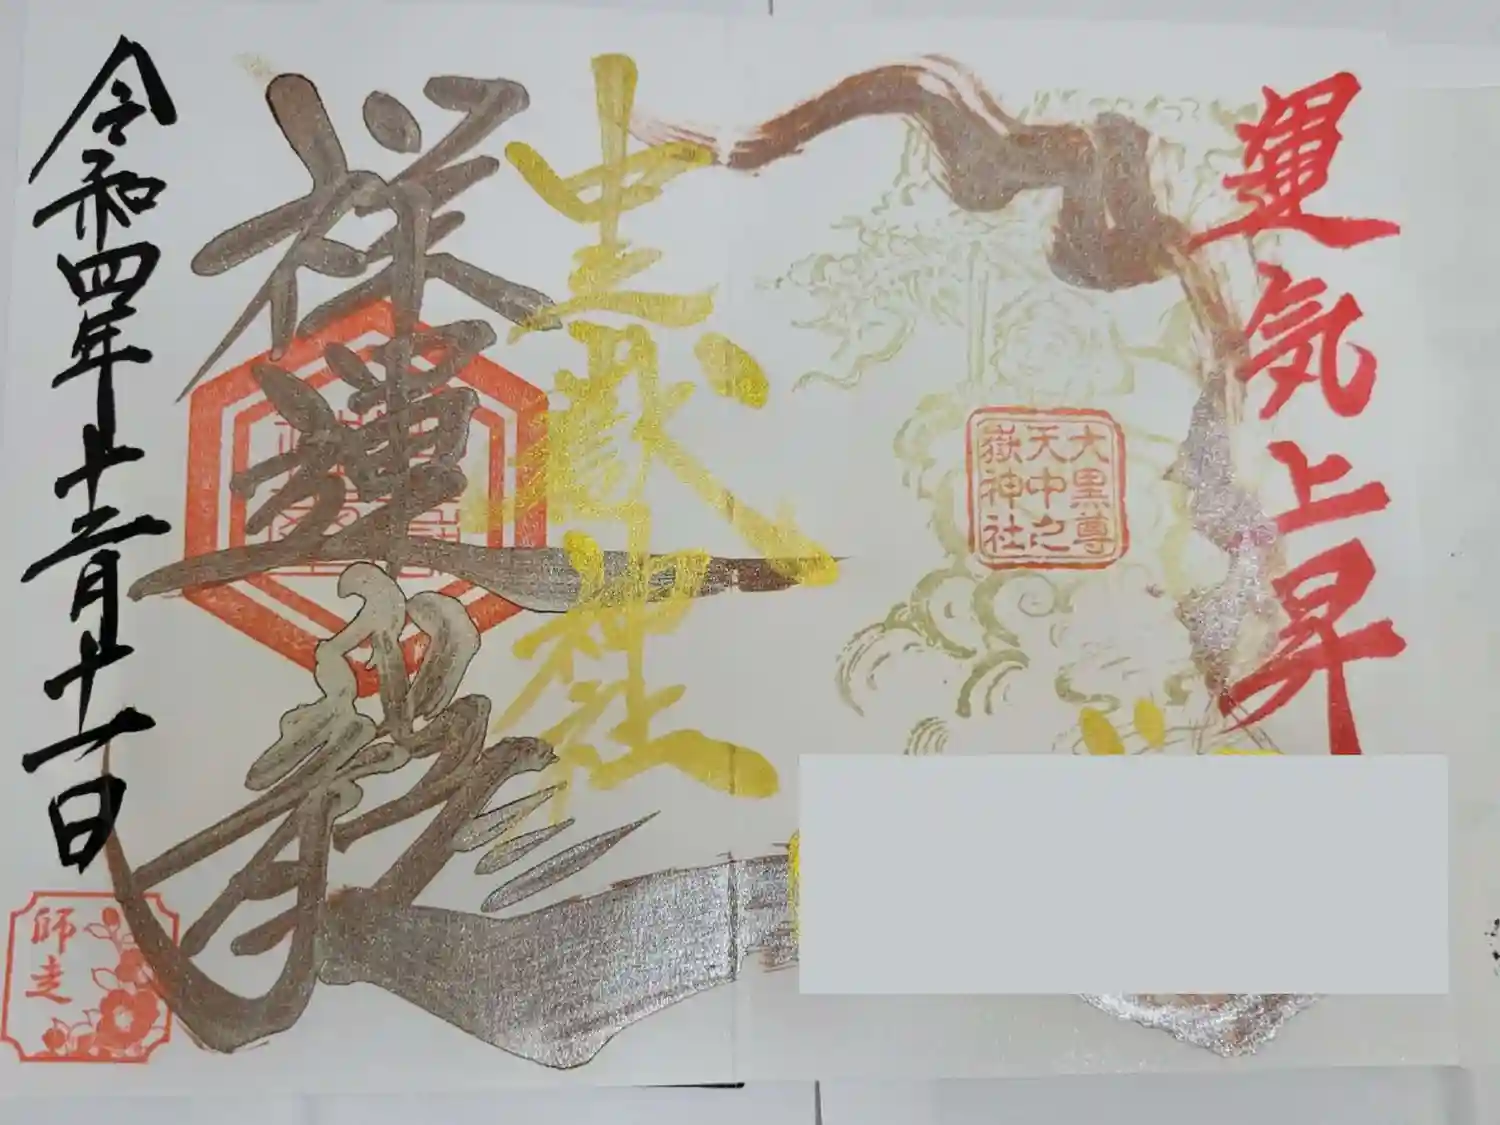 運気上昇
大黒尊
天中之
嶽神社
嶽神社
祥運龍
令和四年十二月十一日
師走